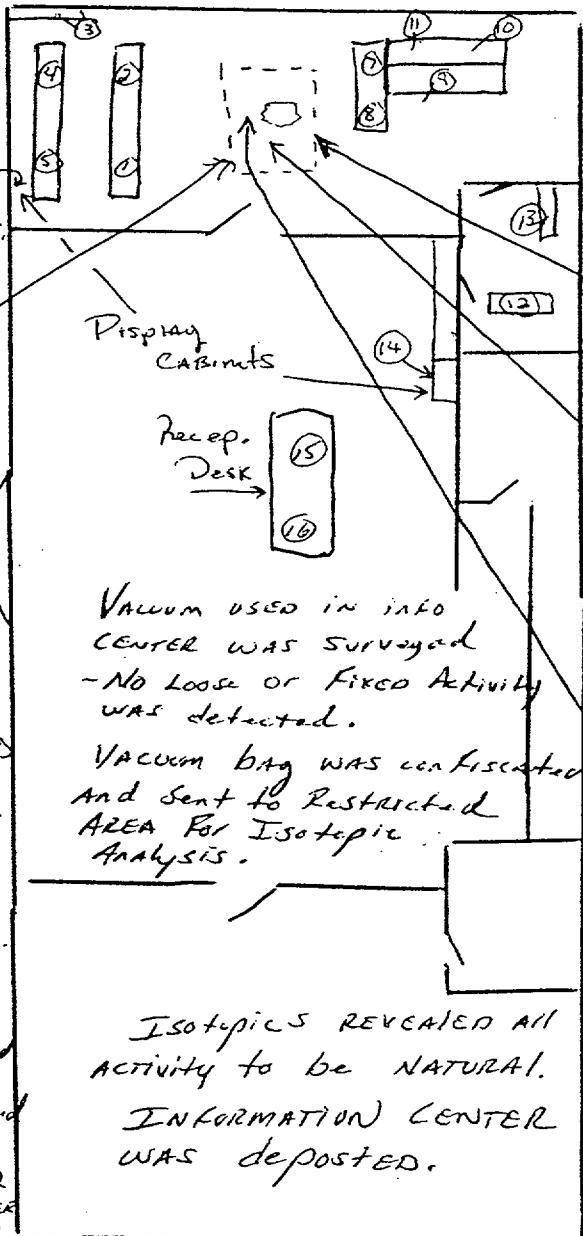 3
11
10
4
2
7
9
8
5
1
13
12
Display
Cabinets
14
Recep.
Desk
15
16
Vacuum used in info
Center was surveyed
- No Loose or Fixed Activity
was detected.
Vacuum bag was confiscated
And Sent to Restricted
Area For Isotopic
Analysis.
Isotopics revealed all
activity to be Natural.
Information Center
was deposted.